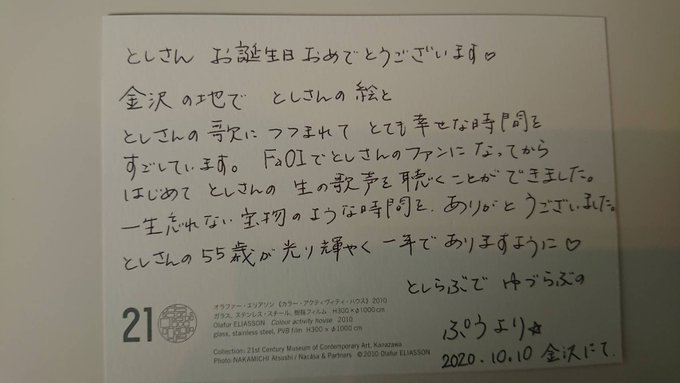 としさん お誕生日おめでとうございます♡
金沢の地で としさんの絵と
としさんの歌につつまれて とても幸せな時間を
すごしています。 FaOIでとしさんのファンになってから
はじめて としさんの 生の歌声を聴くことができました。
一生忘れない宝物のような時間を、ありがとうございました。
としさんの55歳が光り輝やく一年でありますように♡
としらぶで ゆづらぶの
ぷうより☆
2020.10.10 金沢にて.
21
オラファー・エリアソン《カラー・アクティヴィティ・ハウス》2010
ガラス、ステンレス・スチール、樹脂フィルム H300×φ1000cm
Olafur ELIASSON Colour activity house 2010
glass, stainless steel, PVB film H300 × φ1000cm
Collection: 21st Century Museum of Contemporary Art, Kanazawa
Photo: NAKAMICHI Atsushi / Nacása & Partners ©2010 Olafur ELIASSON